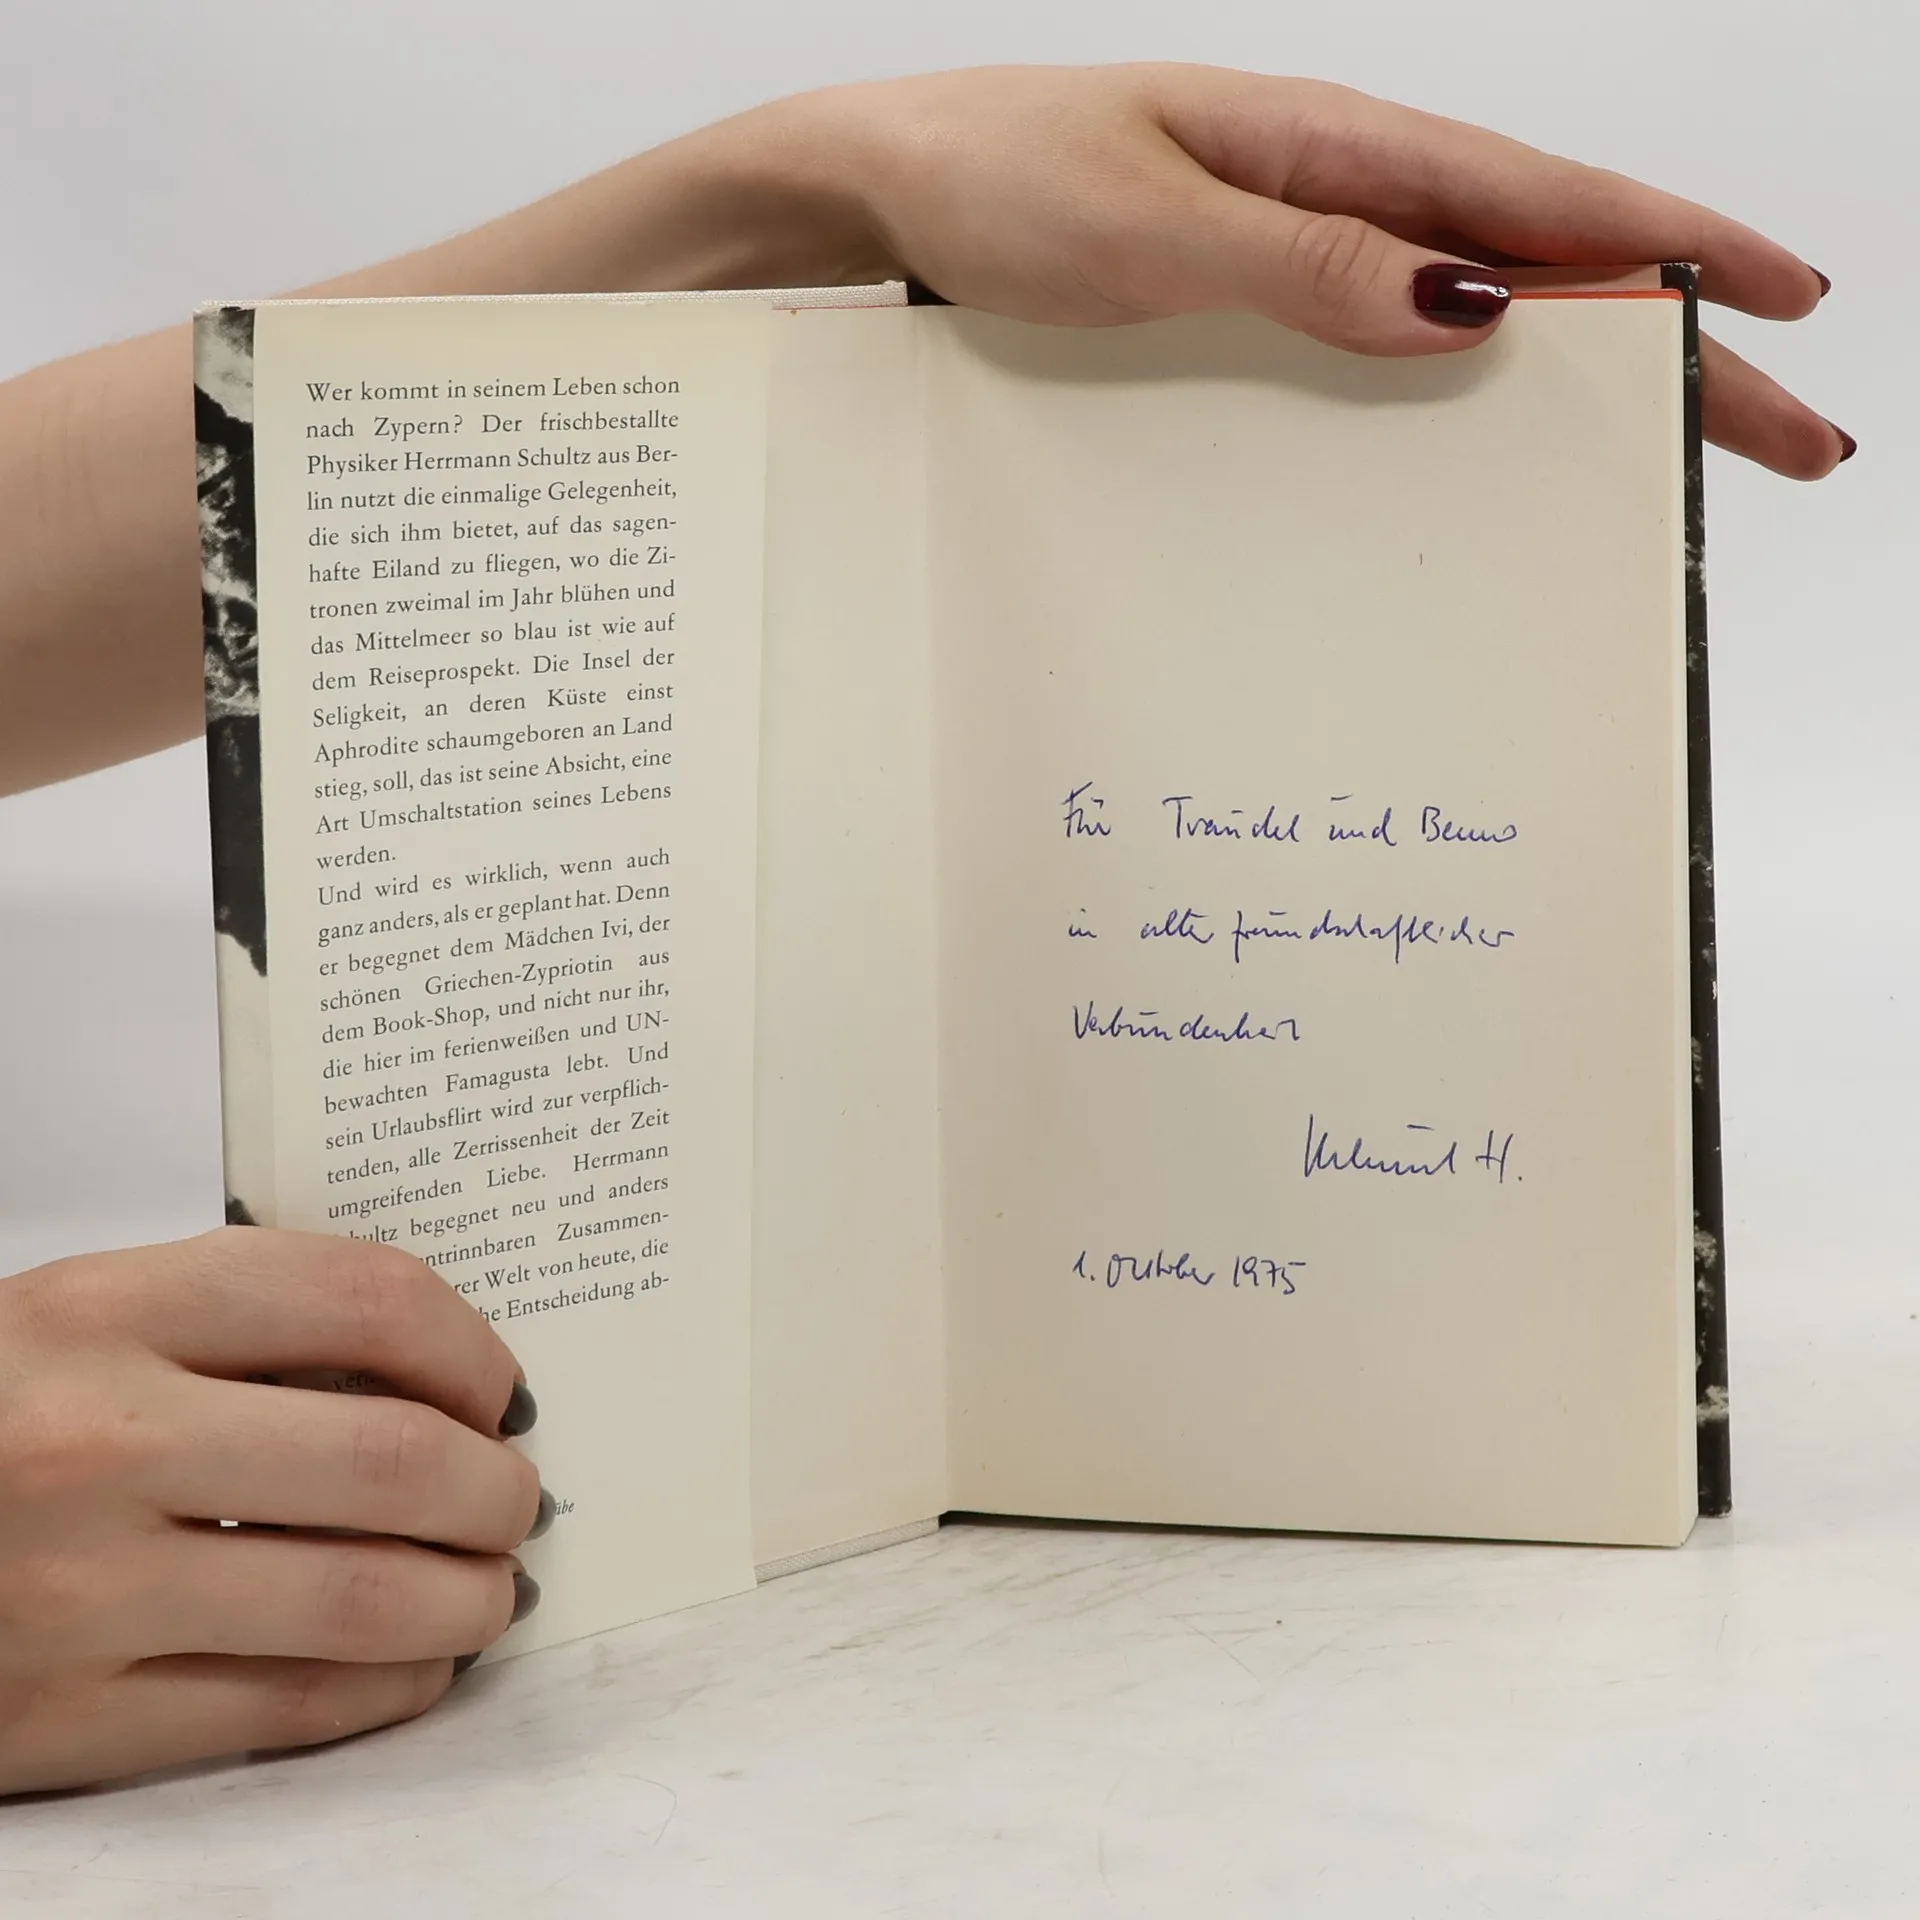 Wer kommt in seinem Leben schon
nach Zypern? Der frischbestallte
Physiker Herrmann Schultz aus Ber-
lin nutzt die einmalige Gelegenheit,
die sich ihm bietet, auf das sagen-
hafte Eiland zu fliegen, wo die Zi-
tronen zweimal im Jahr blühen und
das Mittelmeer so blau ist wie auf
dem Reiseprospekt. Die Insel der
Seligkeit, an deren Küste einst
Aphrodite schaumgeboren an Land
stieg, soll, das ist seine Absicht, eine
Art Umschaltstation seines Lebens
werden.
Und wird es wirklich, wenn auch
ganz anders, als er geplant hat. Denn
er begegnet dem Mädchen Ivi, der
schönen Griechen-Zypriotin aus
dem Book-Shop, und nicht nur ihr,
die hier im ferienweißen und UN-
bewachten Famagusta lebt. Und
sein Urlaubsflirt wird zur verpflich-
tenden, alle Zerrissenheit der Zeit
umgreifenden Liebe. Herrmann
hultz begegnet neu und anders
ntrinnbaren Zusammen-
rer Welt von heute, die
he Entscheidung ab-
Für Traudel und Benno
in alter freundschaftlicher
Verbundenheit
Helmut H.
1. Oktober 1975